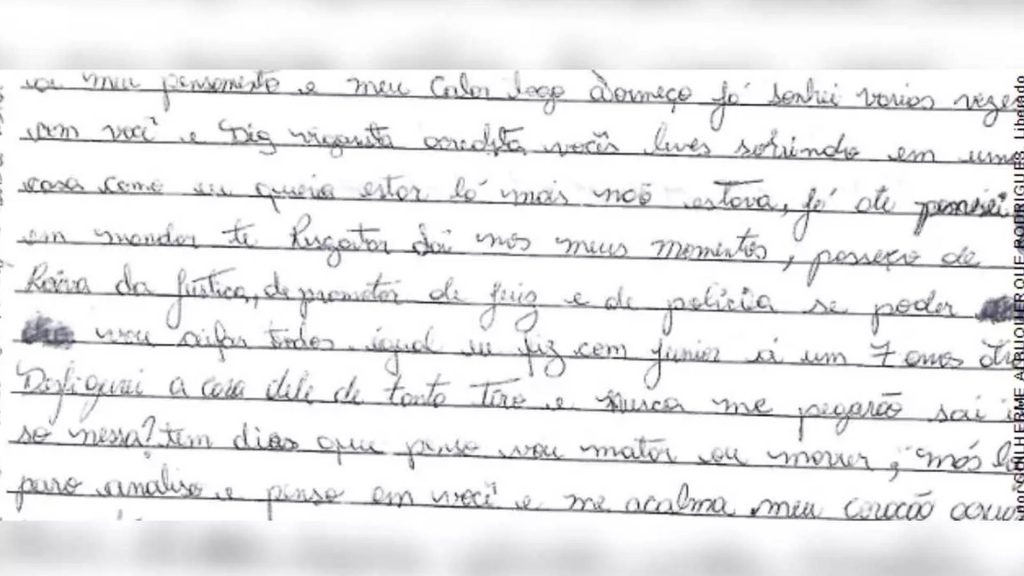 meu pensamento e meu Calor logo Adormeço já sonhei varias vezes
com você e acredita vocês lives sorrindo em uma
casa como eu queria estar lá mais noõ estava, já ate pensei
em mandar te Resgatar dai nos meus momentos, de
Raiva da Justiça, de promotor de juiz e de policia se poder
vou todos igual eu fiz com junior á um 7 anos
Disfigurei a cara dele de tanto Tiro e nunca me pegarão sai
so nessa? tem dias que penso vou matar ou morrer, mós
paro analiso e penso em você e me acalma meu coração
GUILHERME ALBUQUERQUE RODRIGUES, Liberado